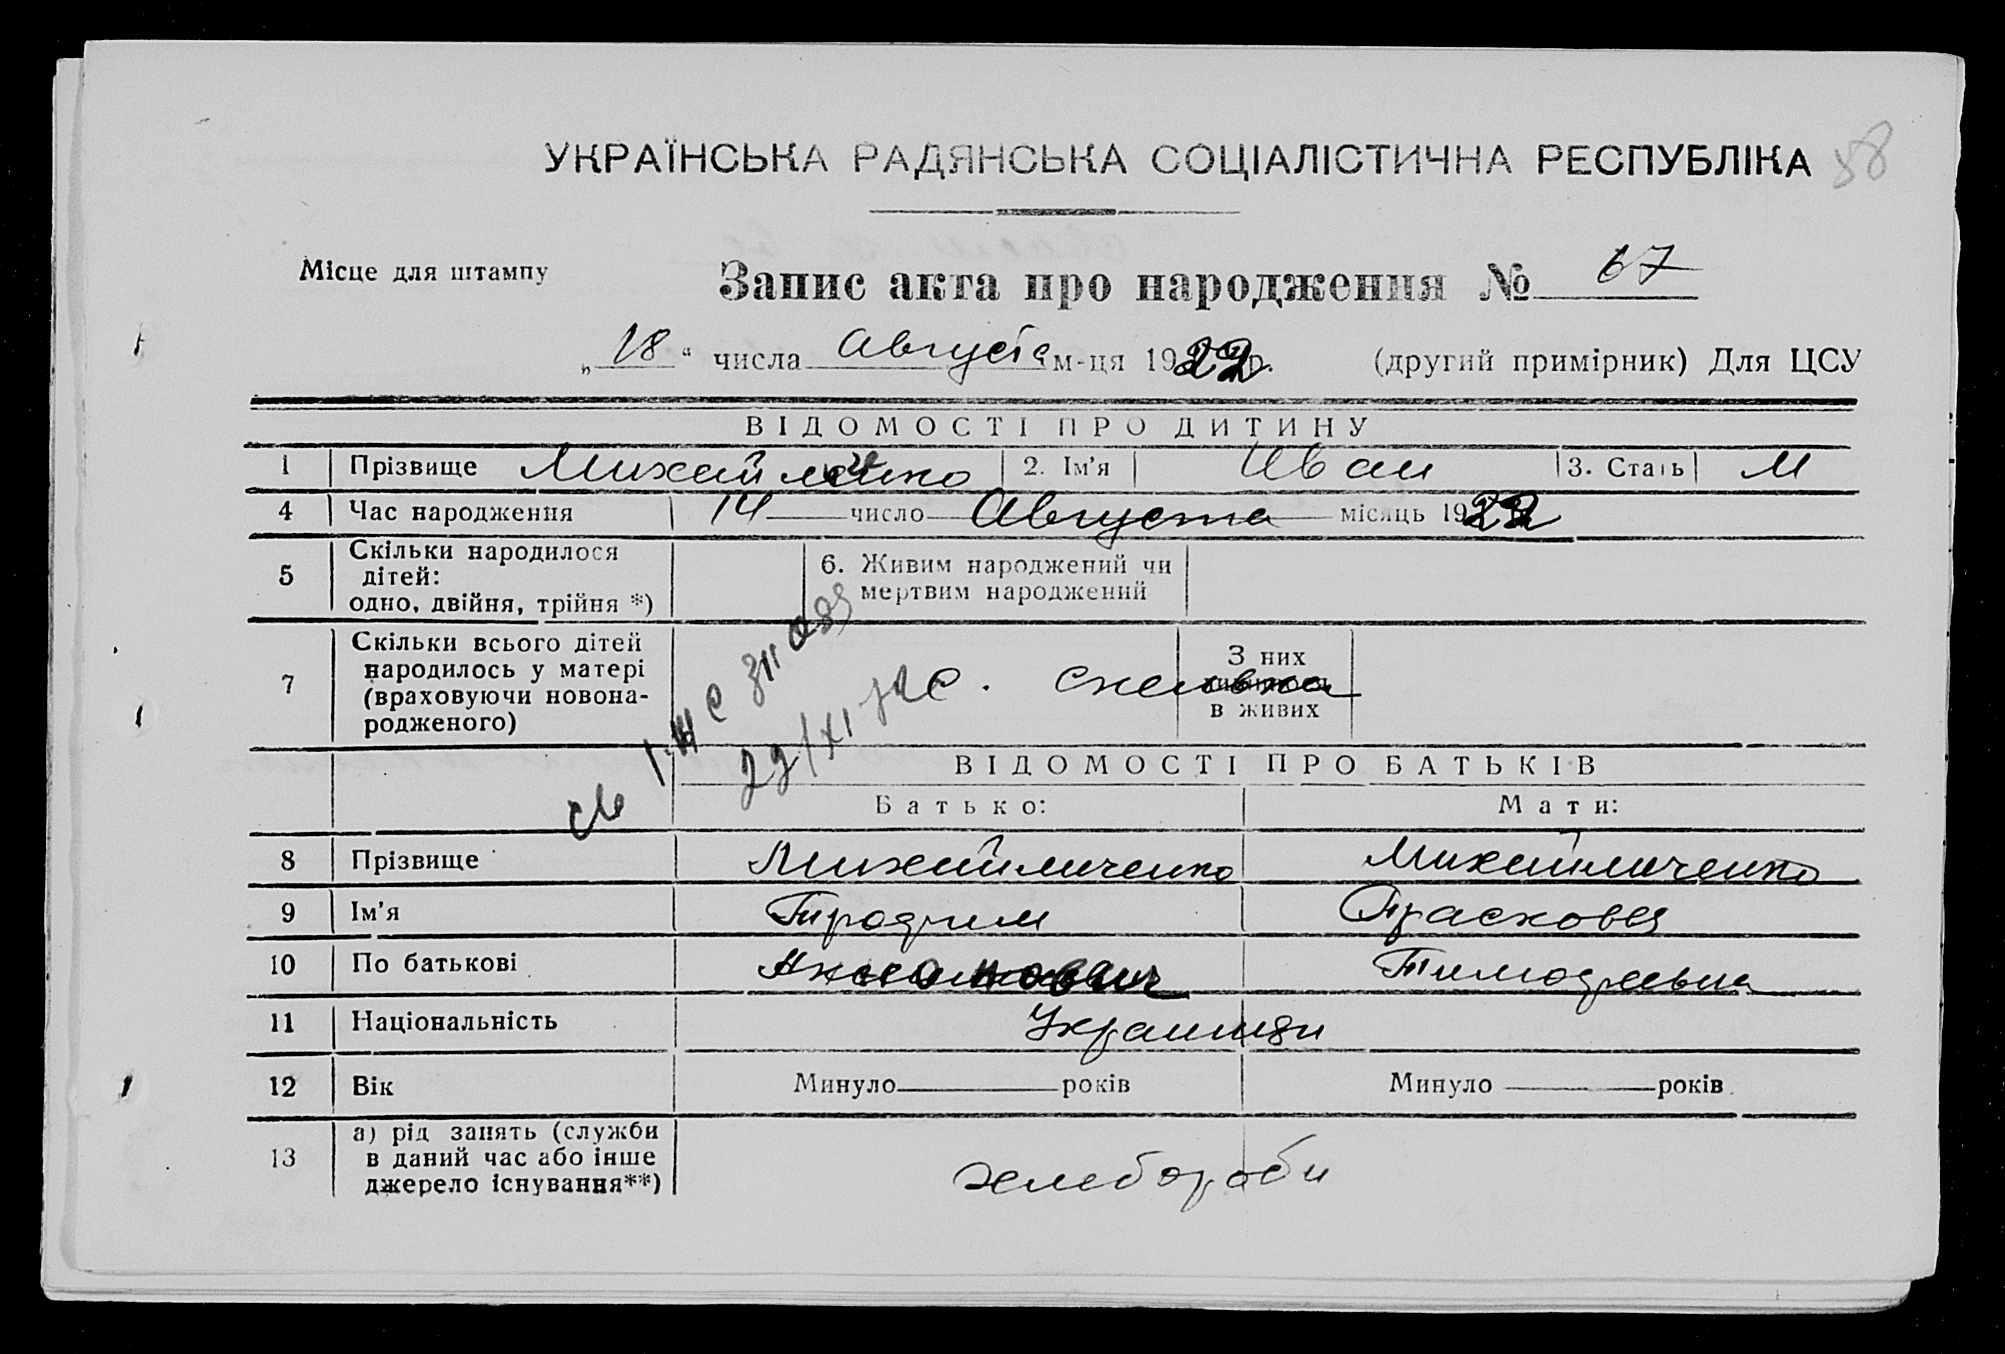 УКРАЇНСЬКА РАДЯНСЬКА СОЦІАЛІСТИЧНА РЕСПУБЛІКА 58
Місце для штампу
Запис акта про народження № 67
„18“ числа Августа м-ця 1922 р. (другий примірник) Для ЦСУ
ВІДОМОСТІ ПРО ДИТИНУ
1 Прізвище 2. Ім'я Иван 3. Стать М
4 Час народження 14 число Августа місяць 1922
5 Скільки народилося дітей: одно, двійня, трійня *) 6. Живим народжений чи мертвим народжений
7 Скільки всього дітей народилось у матері (враховуючи новонародженого) З них в живих
ВІДОМОСТІ ПРО БАТЬКІВ
Батько: Мати:
8 Прізвище Михайличенко Михайличенко
9 Ім'я Трофим Прасковья
10 По батькові Тимофеевна
11 Національність Украинци
12 Вік Минуло років Минуло років
13 а) рід занять (служби в даний час або інше джерело існування**) хлебороби